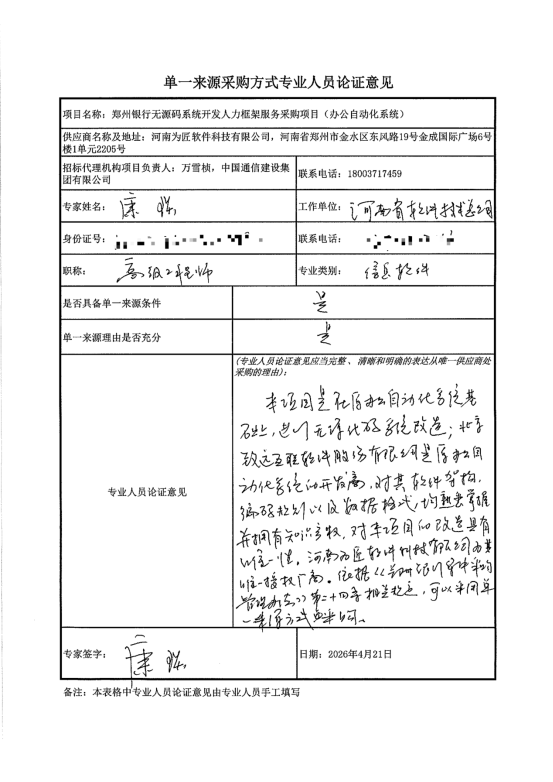 单一来源采购方式专业人员论证意见
项目名称：郑州银行无源码系统开发人力框架服务采购项目（办公自动化系统）
供应商名称及地址：河南为匠软件科技有限公司，河南省郑州市金水区东风路19号金成国际广场6号
楼1单元2205号
招标代理机构项目负责人：万雪桢，中国通信建设集
团有限公司
联系电话：18003717459
专家姓名：康
工作单位：河南省软件技术总公司
身份证号：
联系电话：
职称：高级工程师
专业类别：信息软件
是否具备单一来源条件
是
单一来源理由是否充分
是
专业人员论证意见
(专业人员论证意见应当完整、清晰和明确的表达从唯一供应商处
采购的理由)：
本项目是在原办公自动化系统基
础上，进行无源代码系统改造；北京
致远互联软件股份有限公司是原办公自
动化系统的开发商，对其软件架构、
编码规则以及数据格式，均熟悉掌握
并拥有知识产权，对本项目的改造具有
唯一性。河南为匠软件科技有限公司为其
唯一授权厂商。依据《郑州银行集中采购
管理办法》第二十四条相关规定，可以采用单
一来源方式采购。
专家签字：康
日期：2026年4月21日
备注：本表格中专业人员论证意见由专业人员手工填写